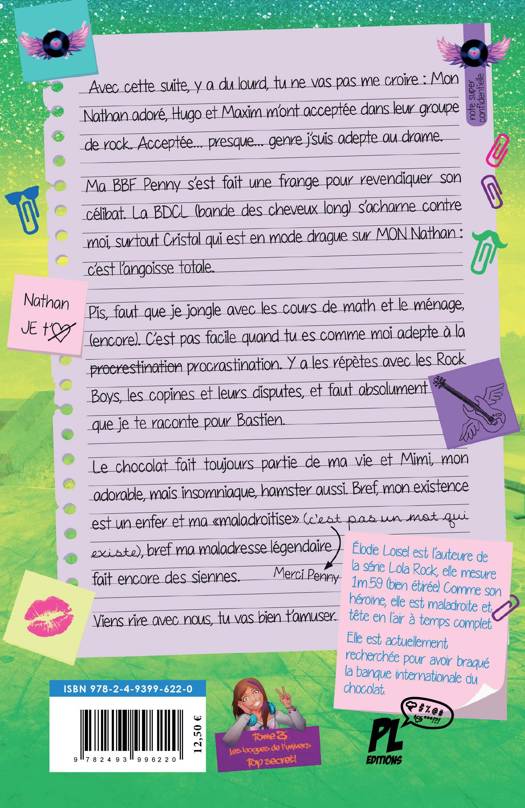 note super
confidentielle
Avec cette suite, y a du lourd, tu ne vas pas me croire : Mon
Nathan adoré, Hugo et Maxim m'ont acceptée dans leur groupe
de rock. Acceptée... presque... genre j'suis adepte au drame.
Ma BBF Penny s'est fait une frange pour revendiquer son
célibat. La BDCL (bande des cheveux long) s'acharne contre
moi, surtout Cristal qui est en mode drague sur MON Nathan :
c'est l'angoisse totale.
Nathan
JE t'
Pis, faut que je jongle avec les cours de math et le ménage,
(encore). C'est pas facile quand tu es comme moi adepte à la
procrestination procrastination. Y a les répètes avec les Rock
Boys, les copines et leurs disputes, et faut absolument
que je te raconte pour Bastien.
Le chocolat fait toujours partie de ma vie et Mimi, mon
adorable, mais insomniaque, hamster aussi. Bref, mon existence
est un enfer et ma «maladroitise» (c'est pas un mot qui
existe), bref ma maladresse légendaire
fait encore des siennes.
Merci Penny
Viens rire avec nous, tu vas bien t'amuser.
Élodie Loisel est l'auteure de
la série Lola Rock, elle mesure
1m59 (bien étirée) Comme son
héroïne, elle est maladroite et
tête en l'air à temps complet.
Elle est actuellement
recherchée pour avoir braqué
la banque internationale du
chocolat.
ISBN 978-2-4-9399-622-0
9 782493 996220
12,50 €
Tome 3
Les bogues de l'univers
Top secret!
PL
EDITIONS